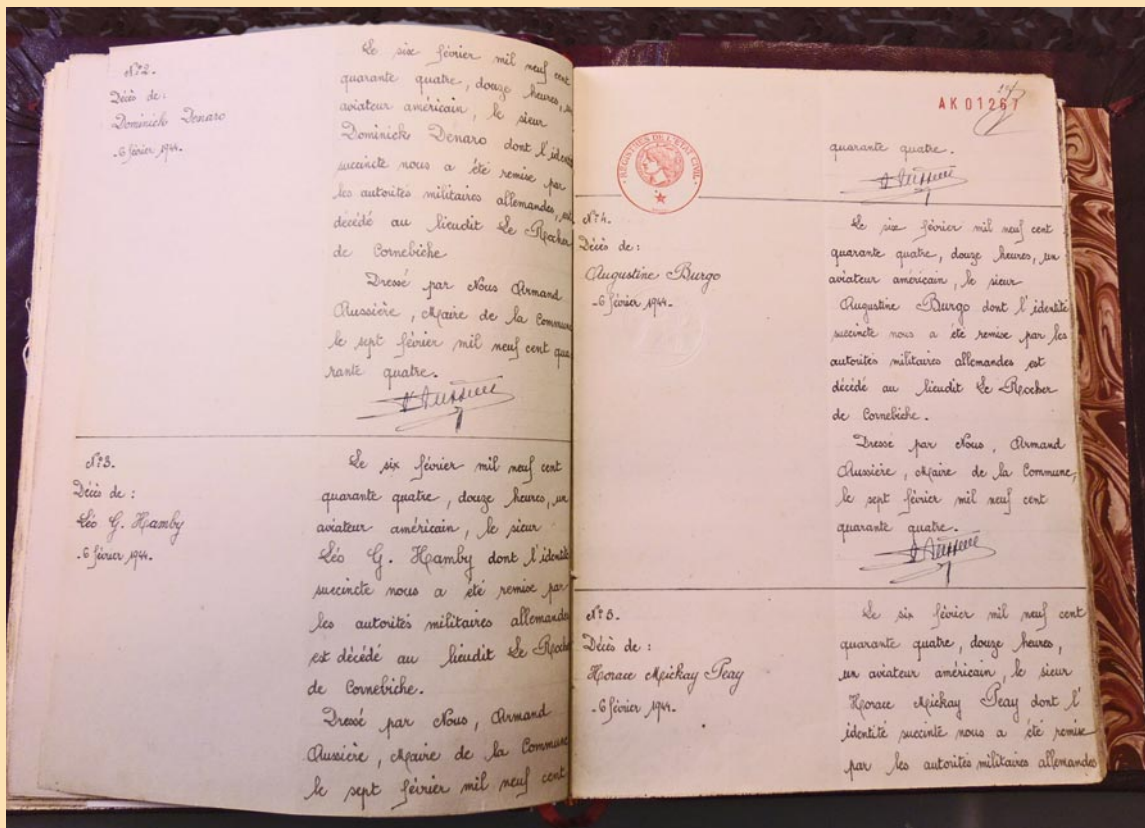 N°2.
Décès de :
Dominick Denaro
_6 février 1944_
Le six février mil neuf cent
quarante quatre, douze heures, un
aviateur américain, le sieur
Dominick Denaro dont l'identité
succincte nous a été remise par
les autorités militaires allemandes, est
décédé au lieudit Le Rocher
de Cornebiche
Dressé par Nous Armand
Aussière, Maire de la Commune
le sept février mil neuf cent qua
rante quatre.
N°3.
Décès de :
Léo G. Hamby
_6 février 1944_
Le six février mil neuf cent
quarante quatre, douze heures, un
aviateur américain, le sieur
Léo G. Hamby dont l'identité
succincte nous a été remise par
les autorités militaires allemandes
est décédé au lieudit Le Rocher
de Cornebiche.
Dressé par Nous, Armand
Aussière, Maire de la Commune
le sept février mil neuf cent
AK 01267
REGISTRES DE L'ETAT CIVIL
quarante quatre.
N°4.
Décès de :
Augustine Burgo
_6 février 1944_
Le six février mil neuf cent
quarante quatre, douze heures, un
aviateur américain, le sieur
Augustine Burgo dont l'identité
succincte nous a été remise par les
autorités militaires allemandes est
décédé au lieudit Le Rocher
de Cornebiche.
Dressé par Nous, Armand
Aussière, Maire de la Commune,
le sept février mil neuf cent
quarante quatre.
N°5.
Décès de :
Horace Mickay Peay
_6 février 1944_
Le six février mil neuf cent
quarante quatre, douze heures,
un aviateur américain, le sieur
Horace Mickay Peay dont l'
identité succinte nous a été remise
par les autorités militaires allemandes